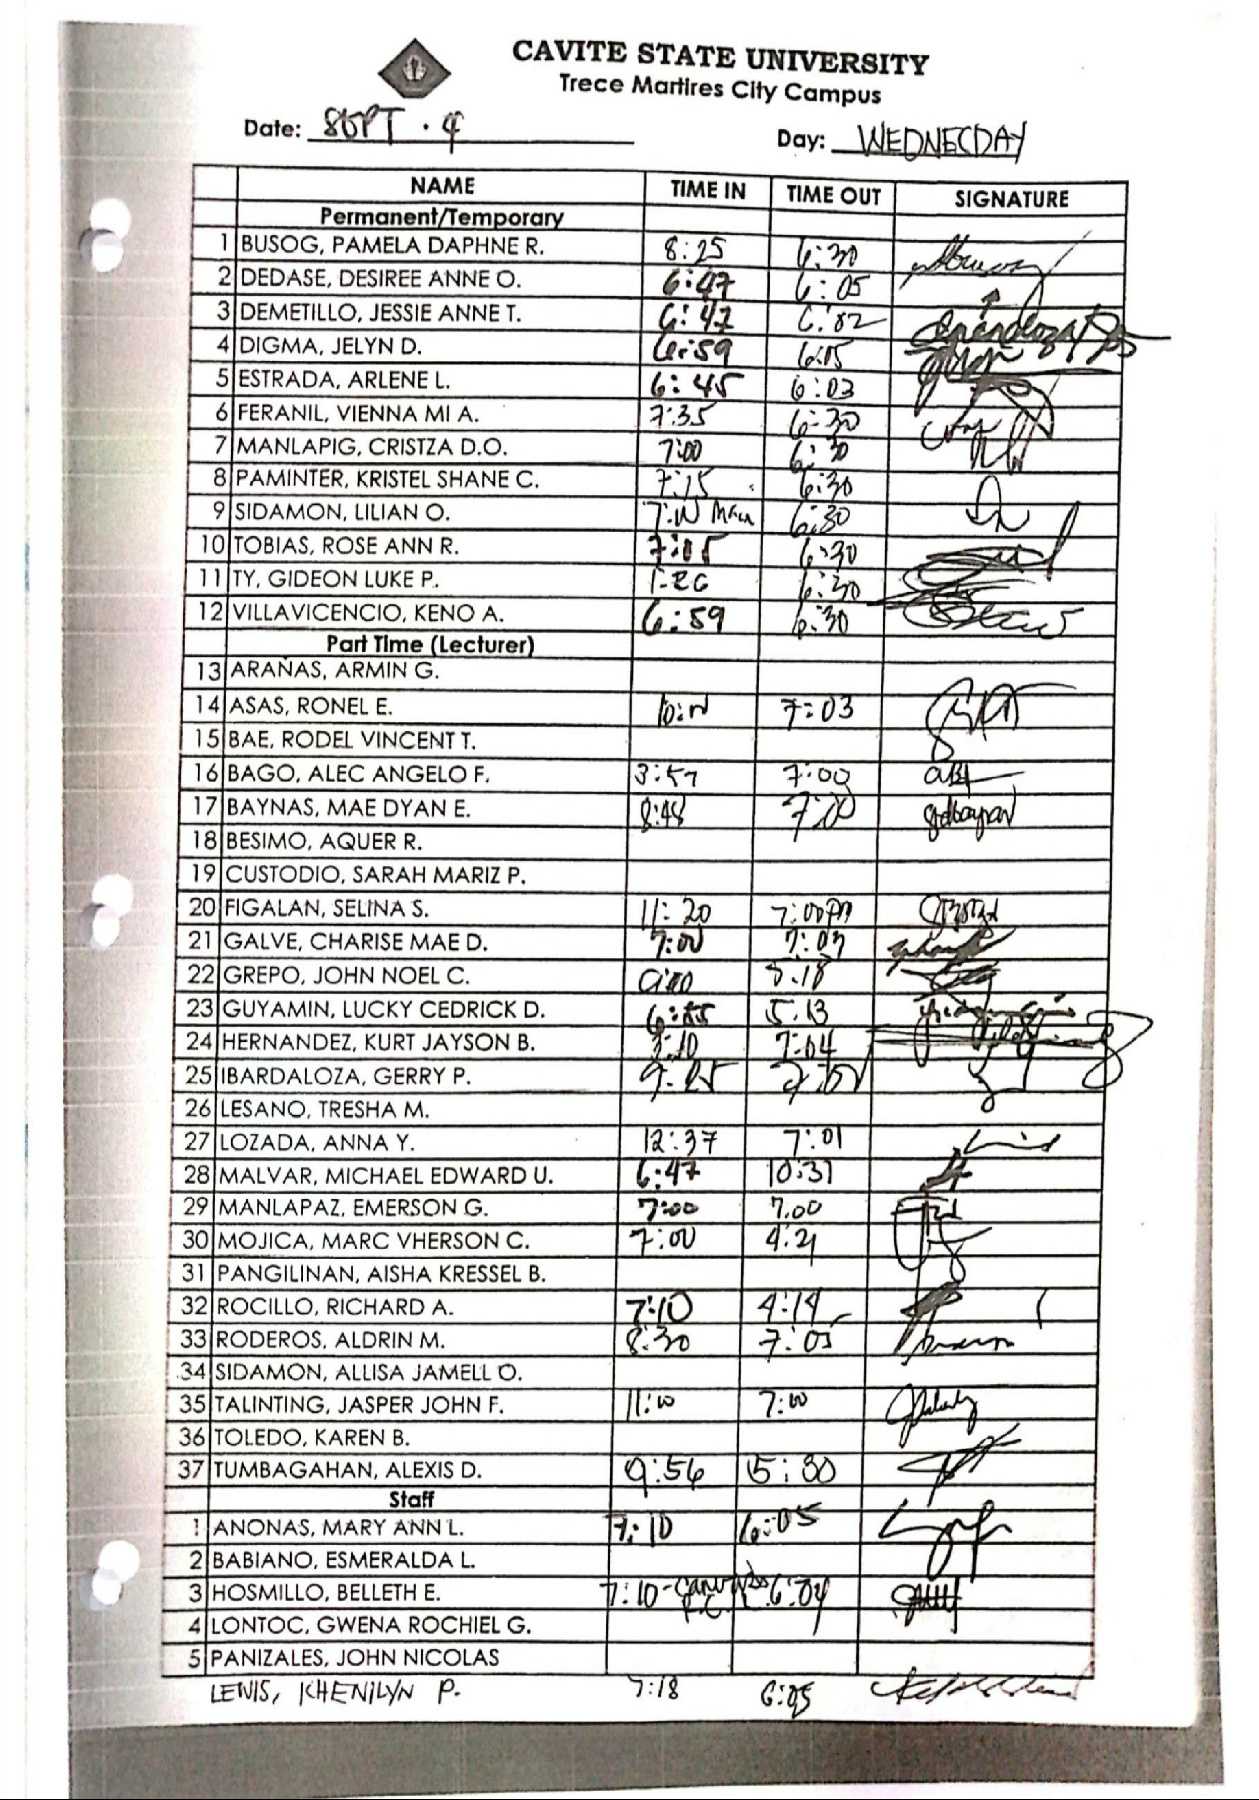 CAVITE STATE UNIVERSITY
Trece Martires City Campus
Date: SEPT. 4 Day: WEDNECDAY
NAME TIME IN TIME OUT SIGNATURE
Permanent/Temporary
1 BUSOG, PAMELA DAPHNE R. 8:25 6:30
2 DEDASE, DESIREE ANNE O. 6:47 6:05
3 DEMETILLO, JESSIE ANNE T. 6:47 6:02
4 DIGMA, JELYN D. 6:59 6:05
5 ESTRADA, ARLENE L. 6:45 6:03
6 FERANIL, VIENNA MI A. 7:35 6:30
7 MANLAPIG, CRISTZA D.O. 7:00 6:30
8 PAMINTER, KRISTEL SHANE C. 7:15 6:30
9 SIDAMON, LILIAN O. 6:30
10 TOBIAS, ROSE ANN R. 7:05 6:30
11 TY, GIDEON LUKE P. 6:30
12 VILLAVICENCIO, KENO A. 6:59 6:30
Part Time (Lecturer)
13 ARAÑAS, ARMIN G.
14 ASAS, RONEL E. 7:03
15 BAE, RODEL VINCENT T.
16 BAGO, ALEC ANGELO F. 3:57 7:00
17 BAYNAS, MAE DYAN E. 8:48 7:00
18 BESIMO, AQUER R.
19 CUSTODIO, SARAH MARIZ P.
20 FIGALAN, SELINA S. 11:20 7:00PM
21 GALVE, CHARISE MAE D. 7:00 7:03
22 GREPO, JOHN NOEL C. 9:00
23 GUYAMIN, LUCKY CEDRICK D. 6:55 5:13
24 HERNANDEZ, KURT JAYSON B. 7:04
25 IBARDALOZA, GERRY P. 9:25
26 LESANO, TRESHA M.
27 LOZADA, ANNA Y. 12:37 7:01
28 MALVAR, MICHAEL EDWARD U. 6:47 10:31
29 MANLAPAZ, EMERSON G. 7:00 7.00
30 MOJICA, MARC VHERSON C. 7:00 4:21
31 PANGILINAN, AISHA KRESSEL B.
32 ROCILLO, RICHARD A. 7:10 4:14
33 RODEROS, ALDRIN M. 8:30 7:05
34 SIDAMON, ALLISA JAMELL O.
35 TALINTING, JASPER JOHN F. 11:00 7:00
36 TOLEDO, KAREN B.
37 TUMBAGAHAN, ALEXIS D. 9:56 5:30
Staff
1 ANONAS, MARY ANN L. 7:10 6:05
2 BABIANO, ESMERALDA L.
3 HOSMILLO, BELLETH E. 7:10 6:04
4 LONTOC, GWENA ROCHIEL G.
5 PANIZALES, JOHN NICOLAS
LEWIS, KHENILYN P. 7:18 6:05